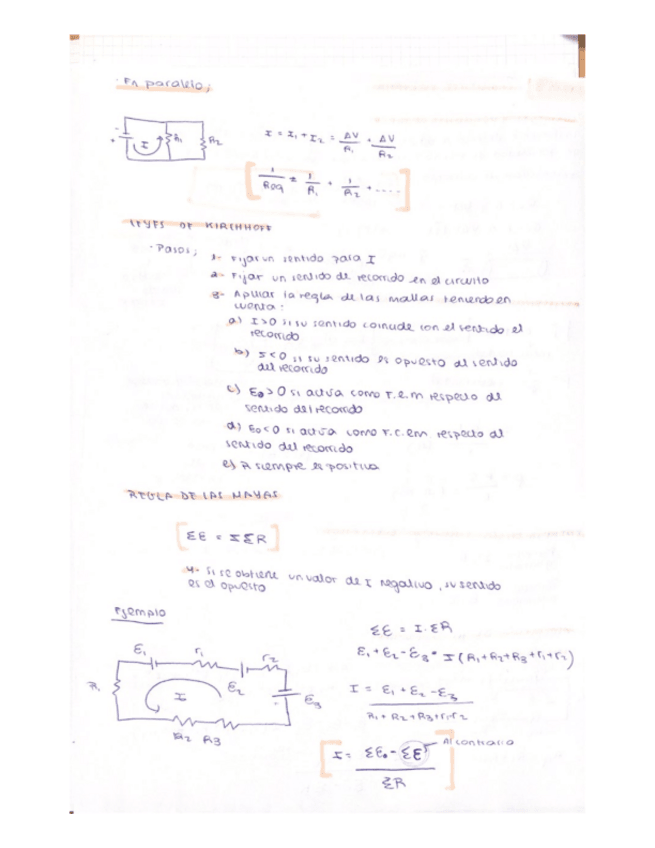 · En paralelo;
- + I R₁ R₂
I = I₁ + I₂ = ΔV/R₁ + ΔV/R₂
[1/Req = 1/R₁ + 1/R₂ + ....]
LEYES DE KIRCHHOFF
· Pasos;
1- Fijar un sentido para I
2- Fijar un sentido de recorrido en el circuito
3- Aplicar la regla de las mallas teniendo en
cuenta:
a) I>0 si su sentido coincide con el sentido el
recorrido
b) I<0 si su sentido es opuesto al sentido
del recorrido
c) E₀>0 si actúa como F.e.m respecto al
sentido del recorrido
d) E₀<0 si actúa como F.c.em respecto al
sentido del recorrido
e) R siempre es positiva
REGLA DE LAS MAYAS
[ΣE = IΣR]
4- Si se obtiene un valor de I negativo, su sentido
es el opuesto
Ejemplo
ΣE = I·ΣR
E₁ + E₂ - E₃ = I(R₁+R₂+R₃+r₁+r₂)
E₁ r₁ E₂ r₂
R₁ I E₃
R₂ R₃
I = E₁ + E₂ - E₃
R₁ + R₂ + R₃+r₁r₂
[I = ΣE₀ - ΣE' Al contrario
ΣR]